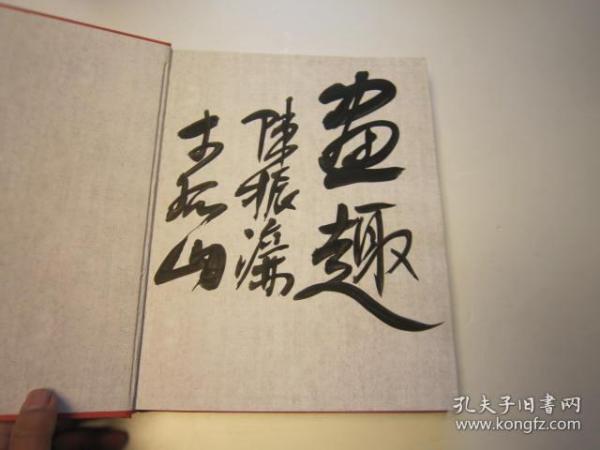 畫趣
陳振濂
于孤山
孔夫子旧书网
www.kongfz.com